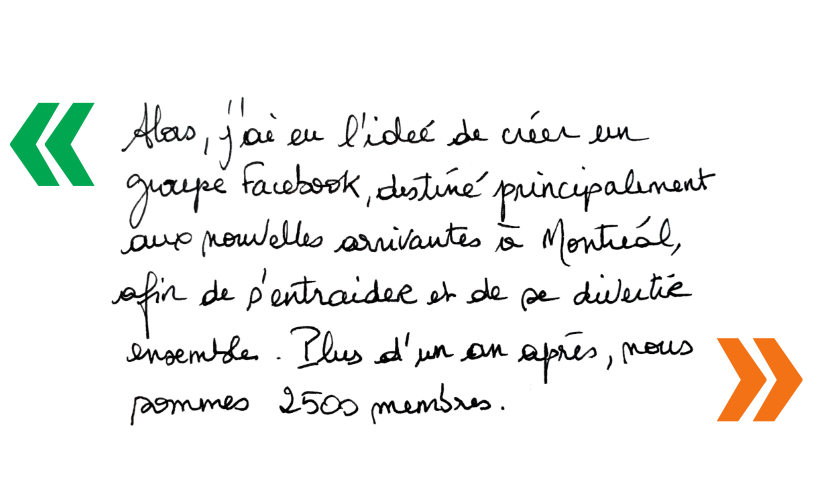 Alors, j'ai eu l'idée de créer un
groupe Facebook, destiné principalement
aux nouvelles arrivantes à Montréal,
afin de s'entraider et de se divertir
ensemble. Plus d'un an après, nous
sommes 2500 membres.